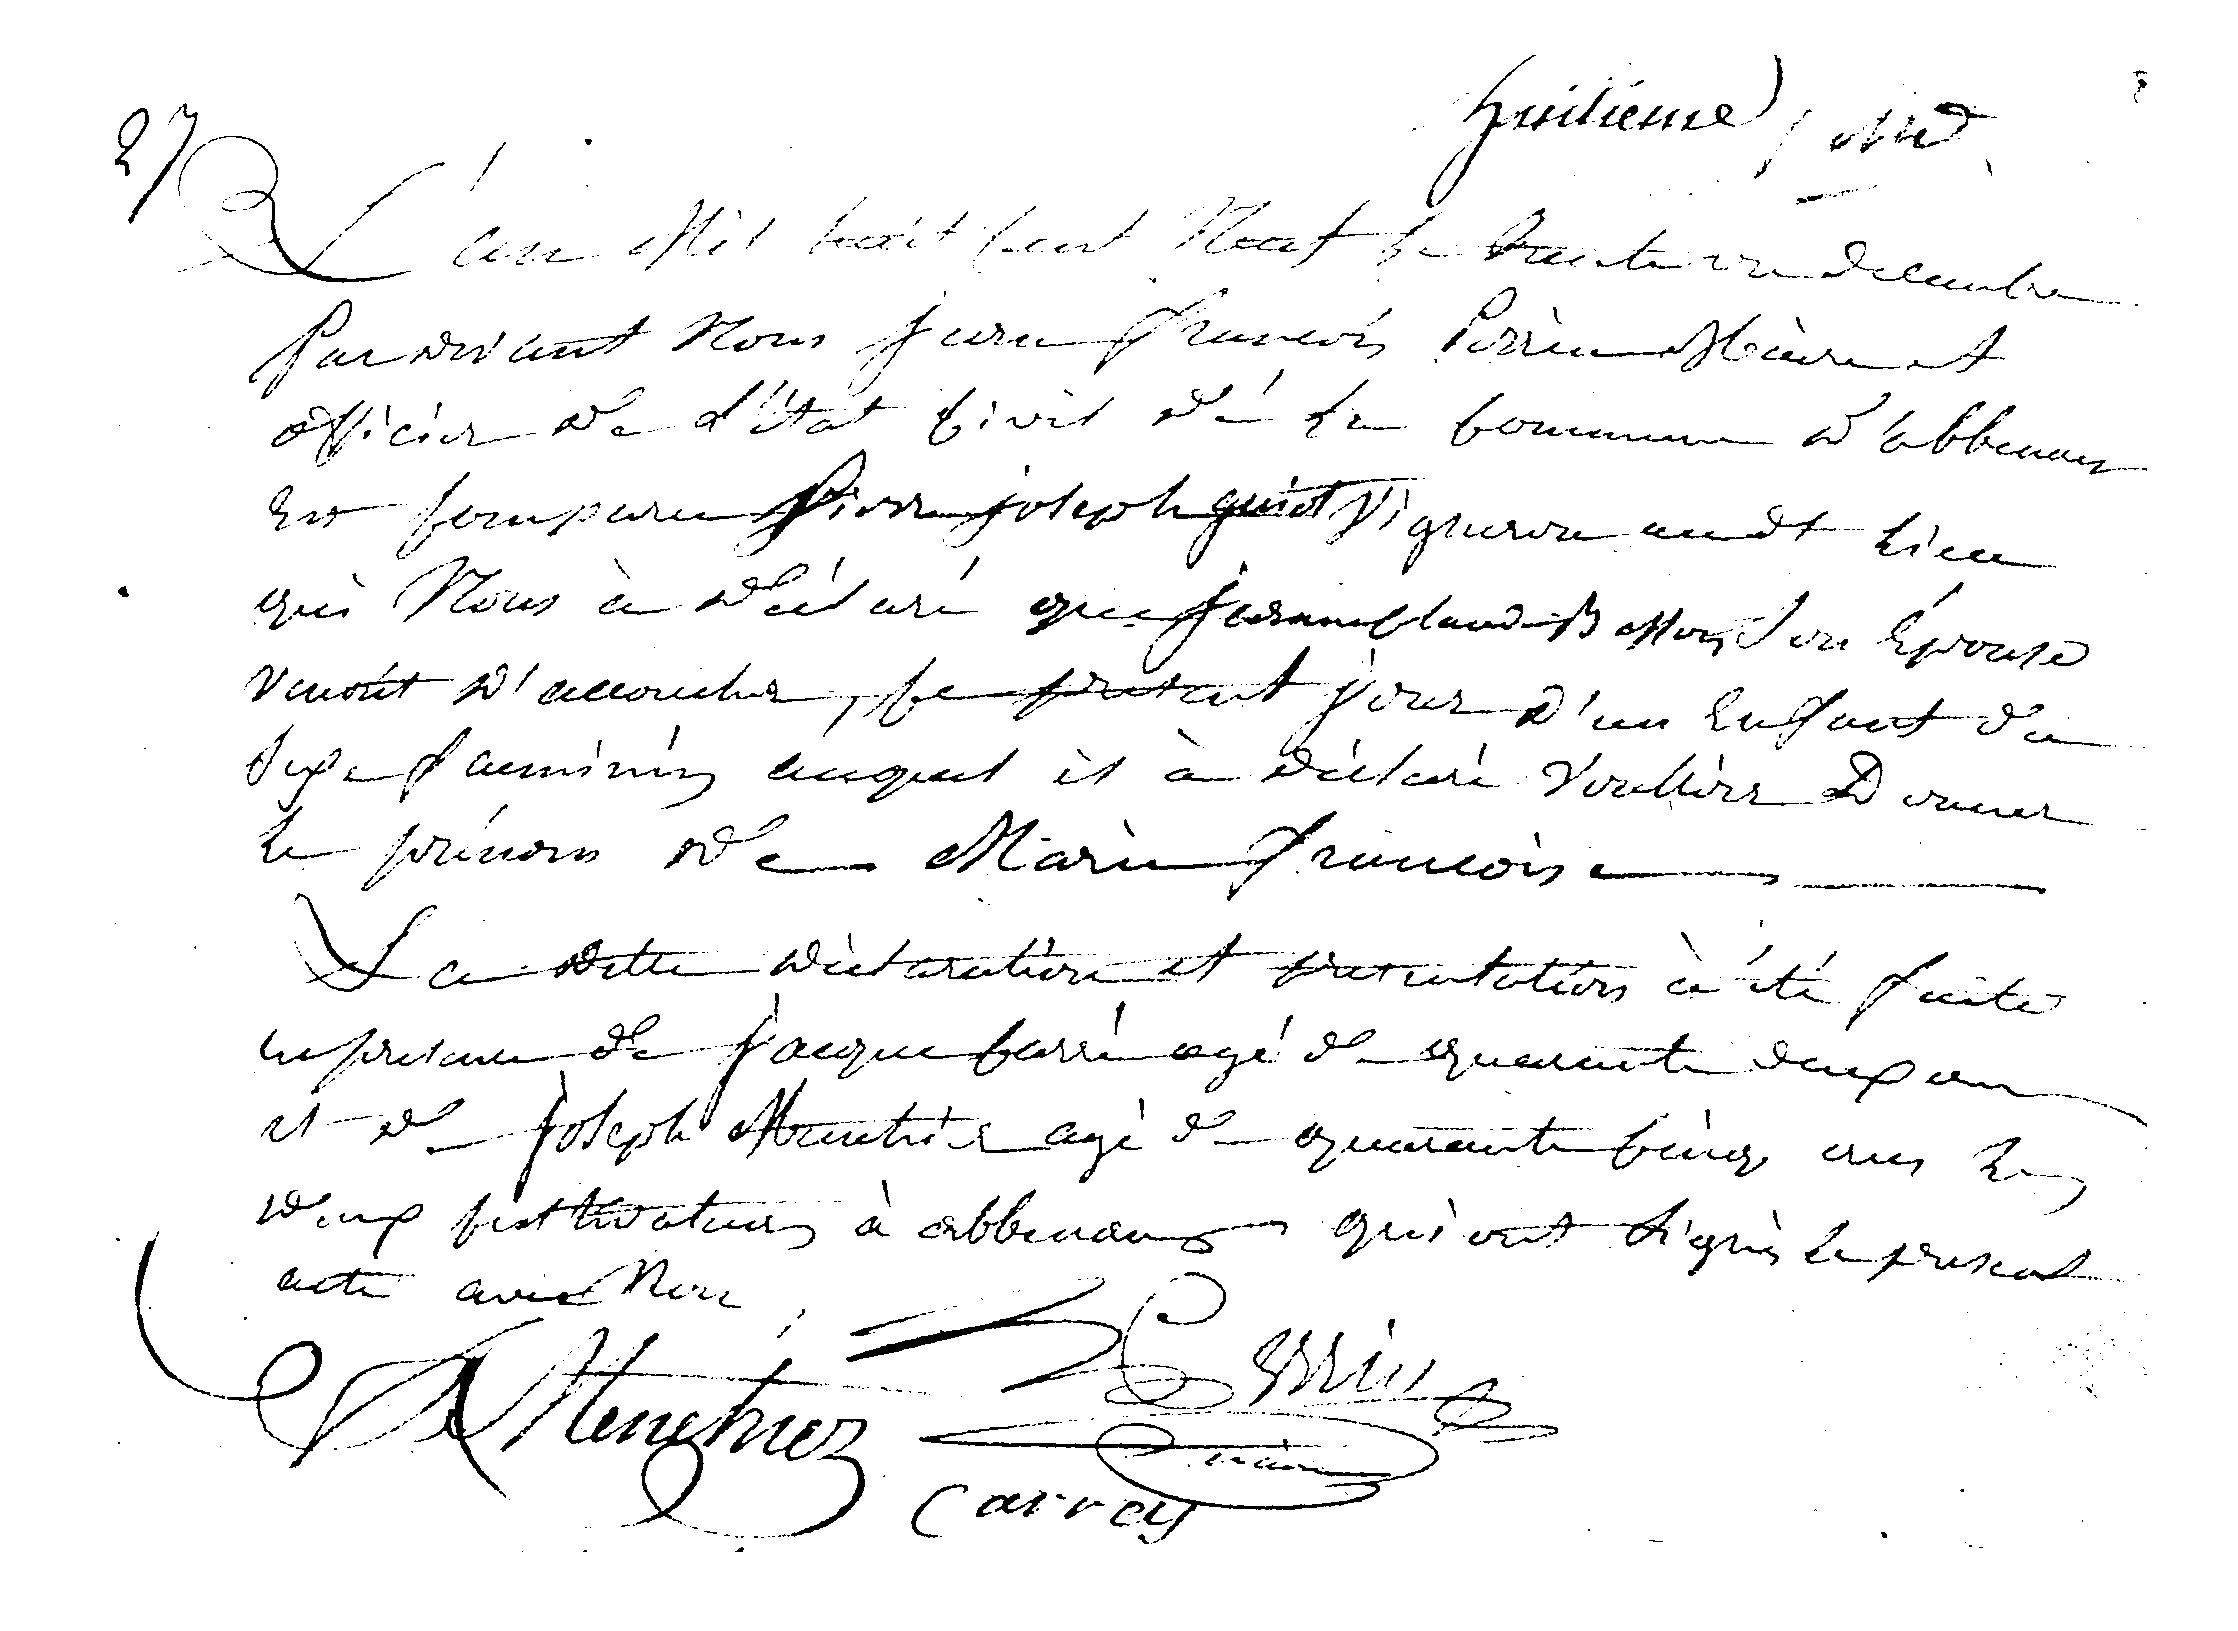 huitieme
27
L'an Mil huit Cent Neuf le trente un decembre
Pardevant Nous Jean François Perrin Maire et
officier de l'état Civil dé la Commune d'abbenans
Est Comparu Pierre joseph guiot Vigneron audt lieu
qui Nous à déclaré que Jeanne Claude son Epouse
venoit d'accoucher, Ce present jour d'un Enfant du
Sexe faeminin auquel il à déclaré Voulloir Donner
Le prénom de Marie françoise
La ditte déclaration et presentation à été faite
en presence de Jacque Carré agé de quarante deux ans
et de Joseph Menetrier agé de quarante Cinq ans Les
deux Cultivateurs à abbenans qui ont Signés le present
acte avec Nous
Perrin
J Menetriez
maire
Carrey